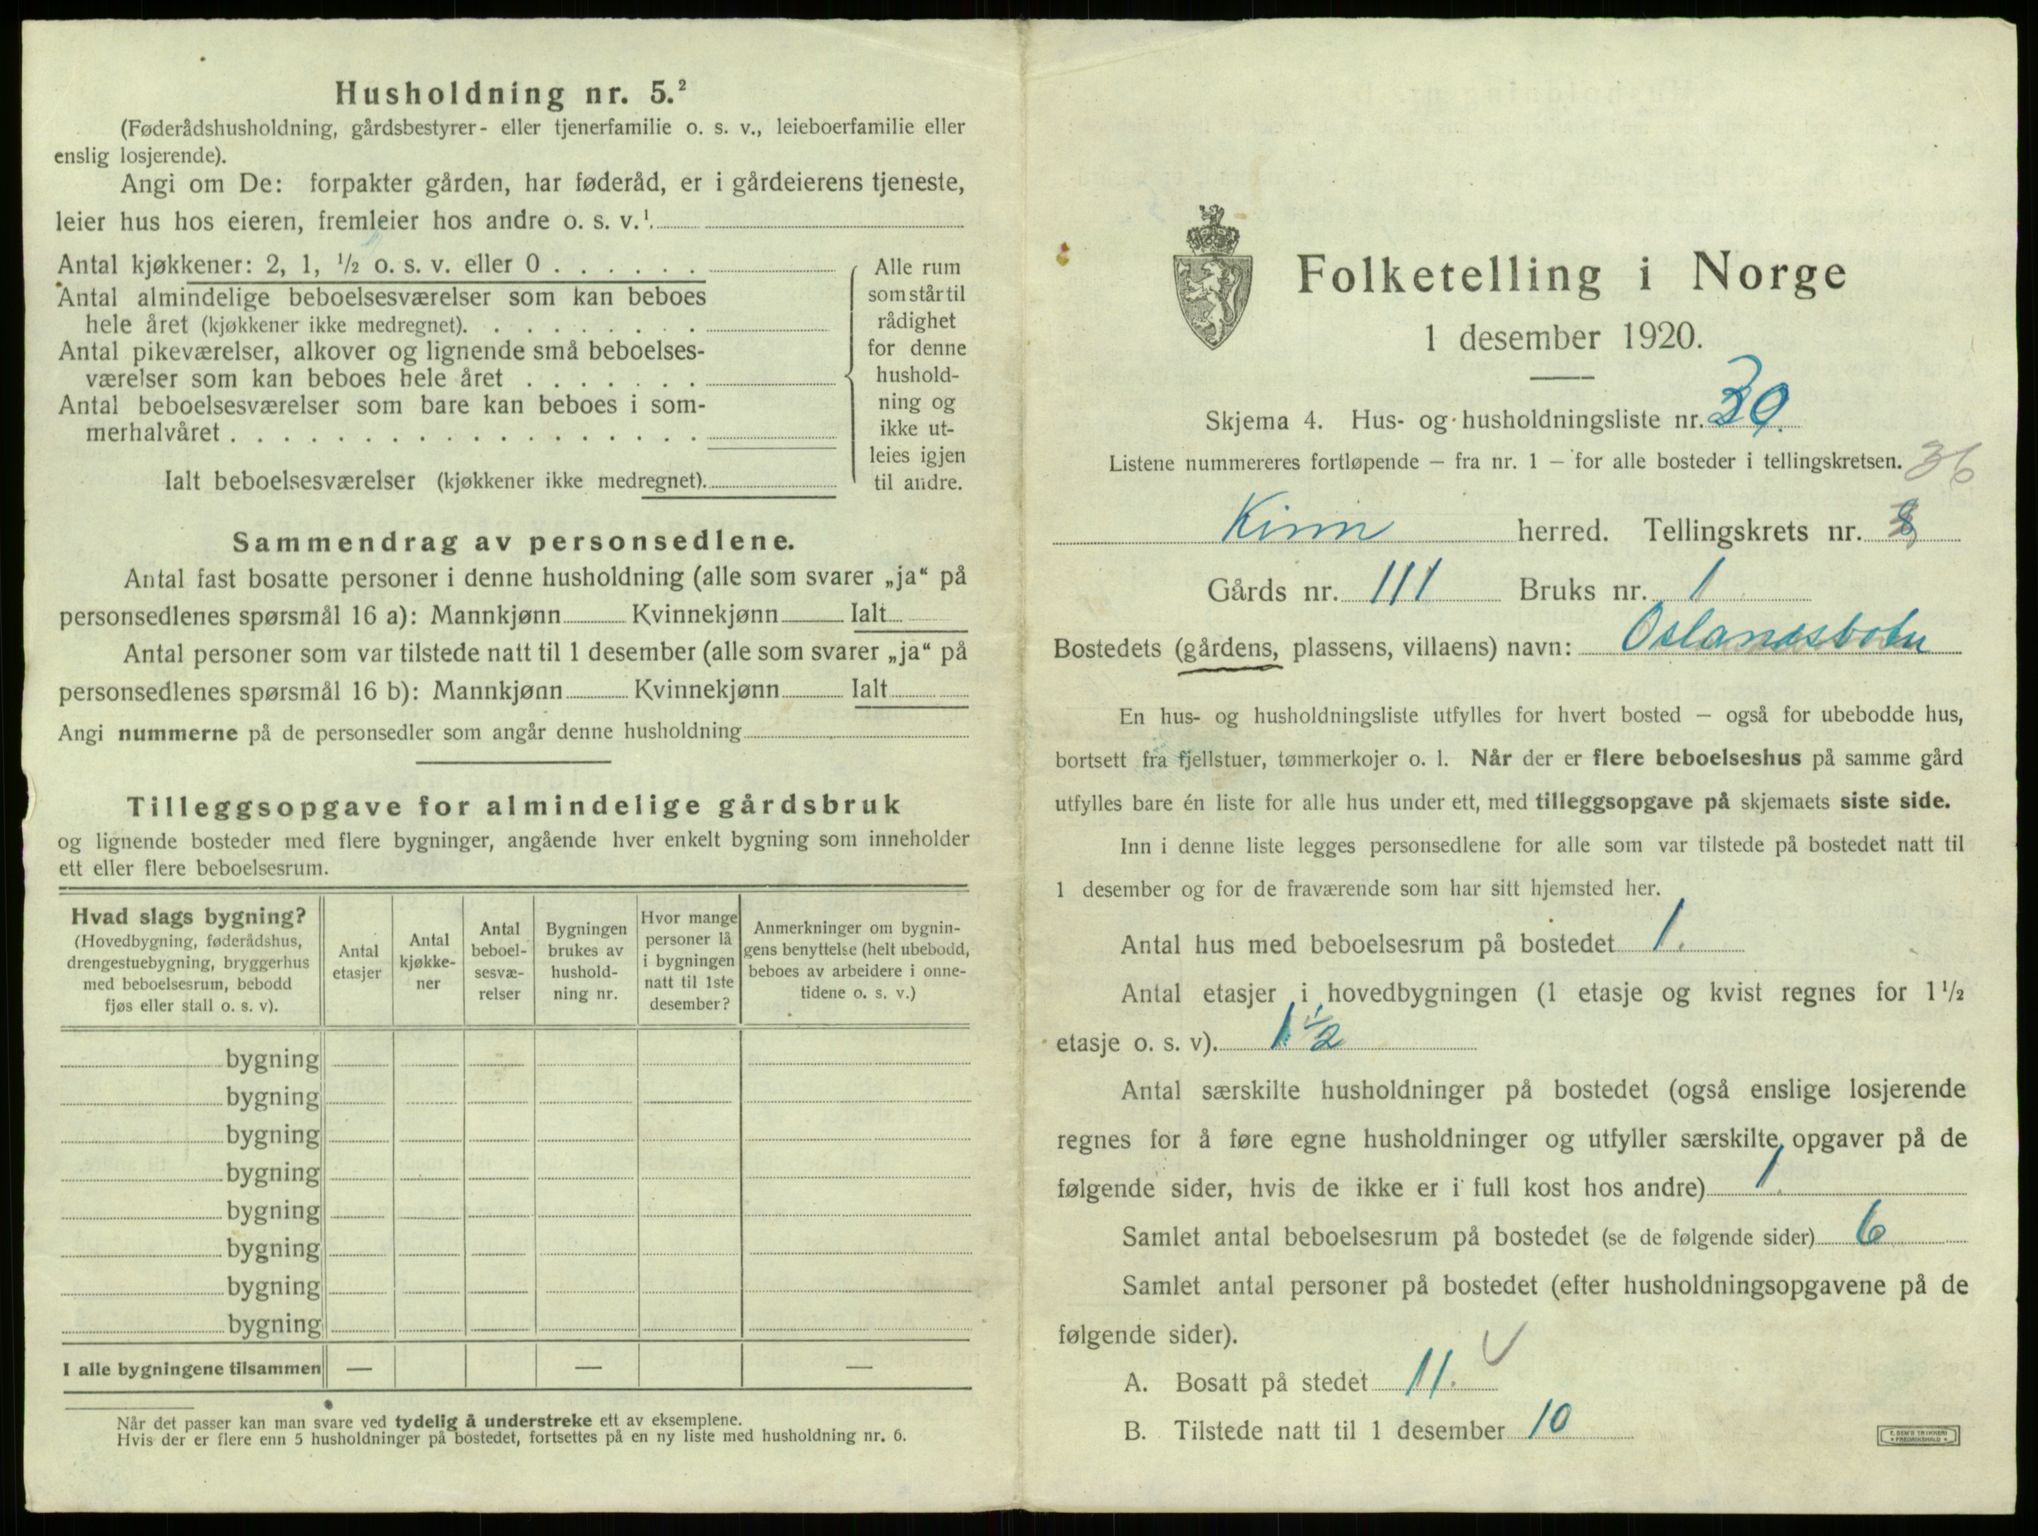 Husholdning nr. 5.²
(Føderådshusholdning, gårdsbestyrer- eller tjenerfamilie o. s. v., leieboerfamilie eller
enslig losjerende).
Angi om De: forpakter gården, har føderåd, er i gårdeierens tjeneste,
leier hus hos eieren, fremleier hos andre o. s. v.¹
Antal kjøkkener: 2, 1, ½ o. s. v. eller 0 . . . . . .
Antal almindelige beboelsesværelser som kan beboes
hele året (kjøkkener ikke medregnet). . . . . . . . .
Antal pikeværelser, alkover og lignende små beboelses-
værelser som kan beboes hele året . . . . . . .
Antal beboelsesværelser som bare kan beboes i som-
merhalvåret . . . . . . . . . . . . . . . . . .
Alle rum
som står til
rådighet
for denne
hushold-
ning og
ikke ut-
leies igjen
til andre.
Ialt beboelsesværelser (kjøkkener ikke medregnet).
Sammendrag av personsedlene.
Antal fast bosatte personer i denne husholdning (alle som svarer „ja" på
personsedlenes spørsmål 16 a): Mannkjønn Kvinnekjønn Ialt
Antal personer som var tilstede natt til 1 desember (alle som svarer „ja" på
personsedlenes spørsmål 16 b): Mannkjønn Kvinnekjønn Ialt
Angi nummerne på de personsedler som angår denne husholdning
Tilleggsopgave for almindelige gårdsbruk
og lignende bosteder med flere bygninger, angående hver enkelt bygning som inneholder
ett eller flere beboelsesrum.
Hvad slags bygning?
(Hovedbygning, føderådshus,
drengestuebygning, bryggerhus
med beboelsesrum, bebodd
fjøs eller stall o. s. v).
Antal
etasjer
Antal
kjøkke-
ner
Antal
beboel-
sesvæ-
relser
Bygningen
brukes av
hushold-
ning nr.
Hvor mange
personer lå
i bygningen
natt til 1ste
desember?
Anmerkninger om bygnin-
gens benyttelse (helt ubebodd,
beboes av arbeidere i onne-
tidene o. s. v.)
bygning
bygning
bygning
bygning
bygning
bygning
bygning
bygning
I alle bygningene tilsammen — — —
Når det passer kan man svare ved tydelig å understreke ett av eksemplene.
Hvis der er flere enn 5 husholdninger på bostedet, fortsettes på en ny liste med husholdning nr. 6.
Folketelling i Norge
1 desember 1920.
Skjema 4. Hus- og husholdningsliste nr. 39.
Listene nummereres fortløpende – fra nr. 1 – for alle bosteder i tellingskretsen. 36
Kinn herred. Tellingskrets nr. 8
Gårds nr. 111 Bruks nr. 1
Bostedets (gårdens, plassens, villaens) navn: Oslandsbotn
En hus- og husholdningsliste utfylles for hvert bosted – også for ubebodde hus,
bortsett fra fjellstuer, tømmerkojer o. l. Når der er flere beboelseshus på samme gård
utfylles bare én liste for alle hus under ett, med tilleggsopgave på skjemaets siste side.
Inn i denne liste legges personsedlene for alle som var tilstede på bostedet natt til
1 desember og for de fraværende som har sitt hjemsted her.
Antal hus med beboelsesrum på bostedet 1.
Antal etasjer i hovedbygningen (1 etasje og kvist regnes for 1½
etasje o. s. v). 1½
Antal særskilte husholdninger på bostedet (også enslige losjerende
regnes for å føre egne husholdninger og utfyller særskilte opgaver på de
følgende sider, hvis de ikke er i full kost hos andre) 1.
Samlet antal beboelsesrum på bostedet (se de følgende sider) 6
Samlet antal personer på bostedet (efter husholdningsopgavene på de
følgende sider).
A. Bosatt på stedet 11.
B. Tilstede natt til 1 desember 10